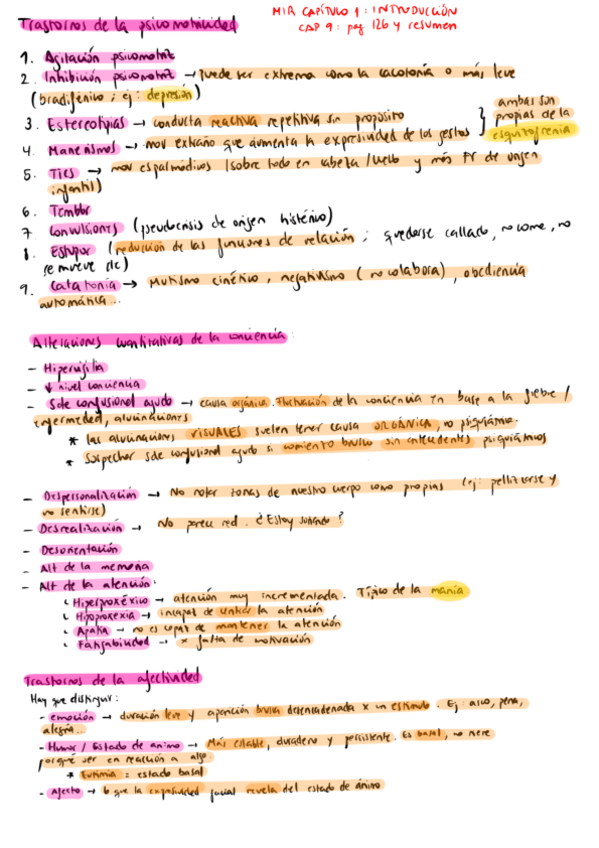 Trastornos de la psicomotricidad
MIR CAPÍTULO 1: INTRODUCCIÓN
CAP 9: pag 126 y resumen
1. Agitación psicomotriz
2. Inhibición psicomotriz → puede ser extrema como la catatonía o más leve
(bradifénico; ej: depresión)
3. Estereotipias → conducta reactiva repetitiva sin propósito
4. Manerismos → mov extraño que aumenta la expresividad de los gestos
ambas son
propias de la
esquizofrenia
5. Tics → mov espasmódicos (sobre todo en cabeza/cuello y más Fr de origen
infantil)
6. Temblor
7. Convulsiones (pseudocrisis de origen histérico)
8. Estupor (reducción de las funciones de relación; quedarse callado, no come, no
se mueve etc)
9. Catatonia → Mutismo cinético, negativismo (no colabora), obediencia
automática...
Alteraciones cuantitativas de la conciencia:
- Hipervigilia
- ↓ nivel conciencia
- Sde confusional agudo → causa orgánica. Fluctuación de la conciencia en base a la fiebre /
enfermedad, alucinaciones
* Las alucinaciones VISUALES suelen tener causa ORGÁNICA, no psiquiátrica.
* Sospechar sde confusional agudo si comienzo brusco sin antecedentes psiquiátricos
- Despersonalización → No notar zonas de nuestro cuerpo como propias (ej: pellizcarse y
no sentirse)
- Desrealización → No parece real. ¿Estoy soñando?
- Desorientación
- Alt de la memoria
- Alt de la atención:
Hiperproxéxico → atención muy incrementada. Típico de la manía
Hipoproxexia → incapaz de centrar la atención
Apatía → no es capaz de mantener la atención
Fatigabilidad → x falta de motivación
Trastornos de la afectividad
Hay que distinguir:
- emoción → duración leve y aparición brusca desencadenada x un estímulo. Ej: asco, pena,
alegría...
- Humor / Estado de ánimo → Más estable, duradero y persistente. Es basal, no tiene
porqué ser en reacción a algo
* Eutimia = estado basal
- Afecto → lo que la expresividad facial revela del estado de ánimo